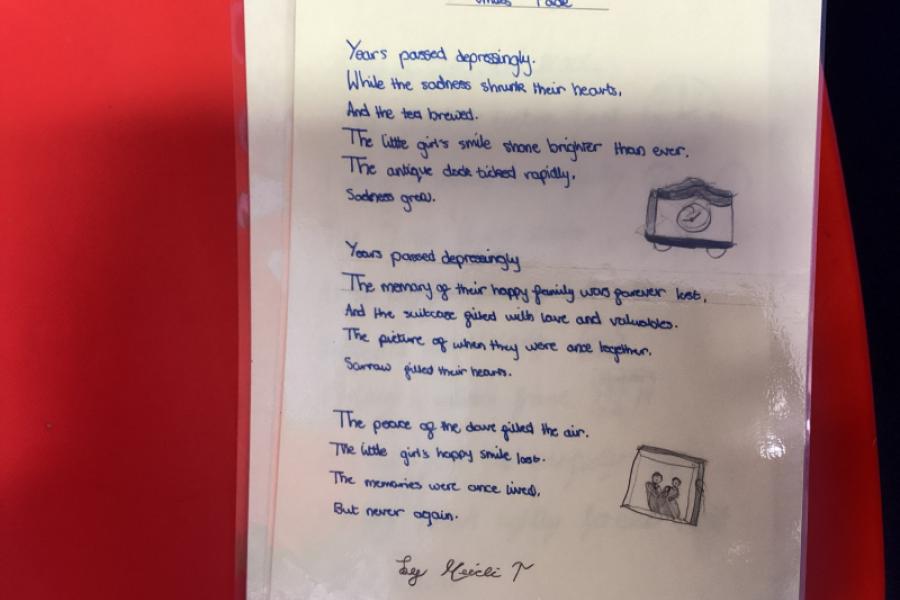 Years passed depressingly.
While the sadness shrunk their hearts,
And the tea brewed.
The little girl's smile shone brighter than ever.
The antique clock ticked rapidly,
Sadness grew.
Years passed depressingly
The memory of their happy family was forever lost,
And the suitcase filled with love and valuables.
The picture of when they were once together.
Sorrow filled their hearts.
The peace of the dove filled the air.
The little girl's happy smile lost.
The memories were once lived,
But never again.
by